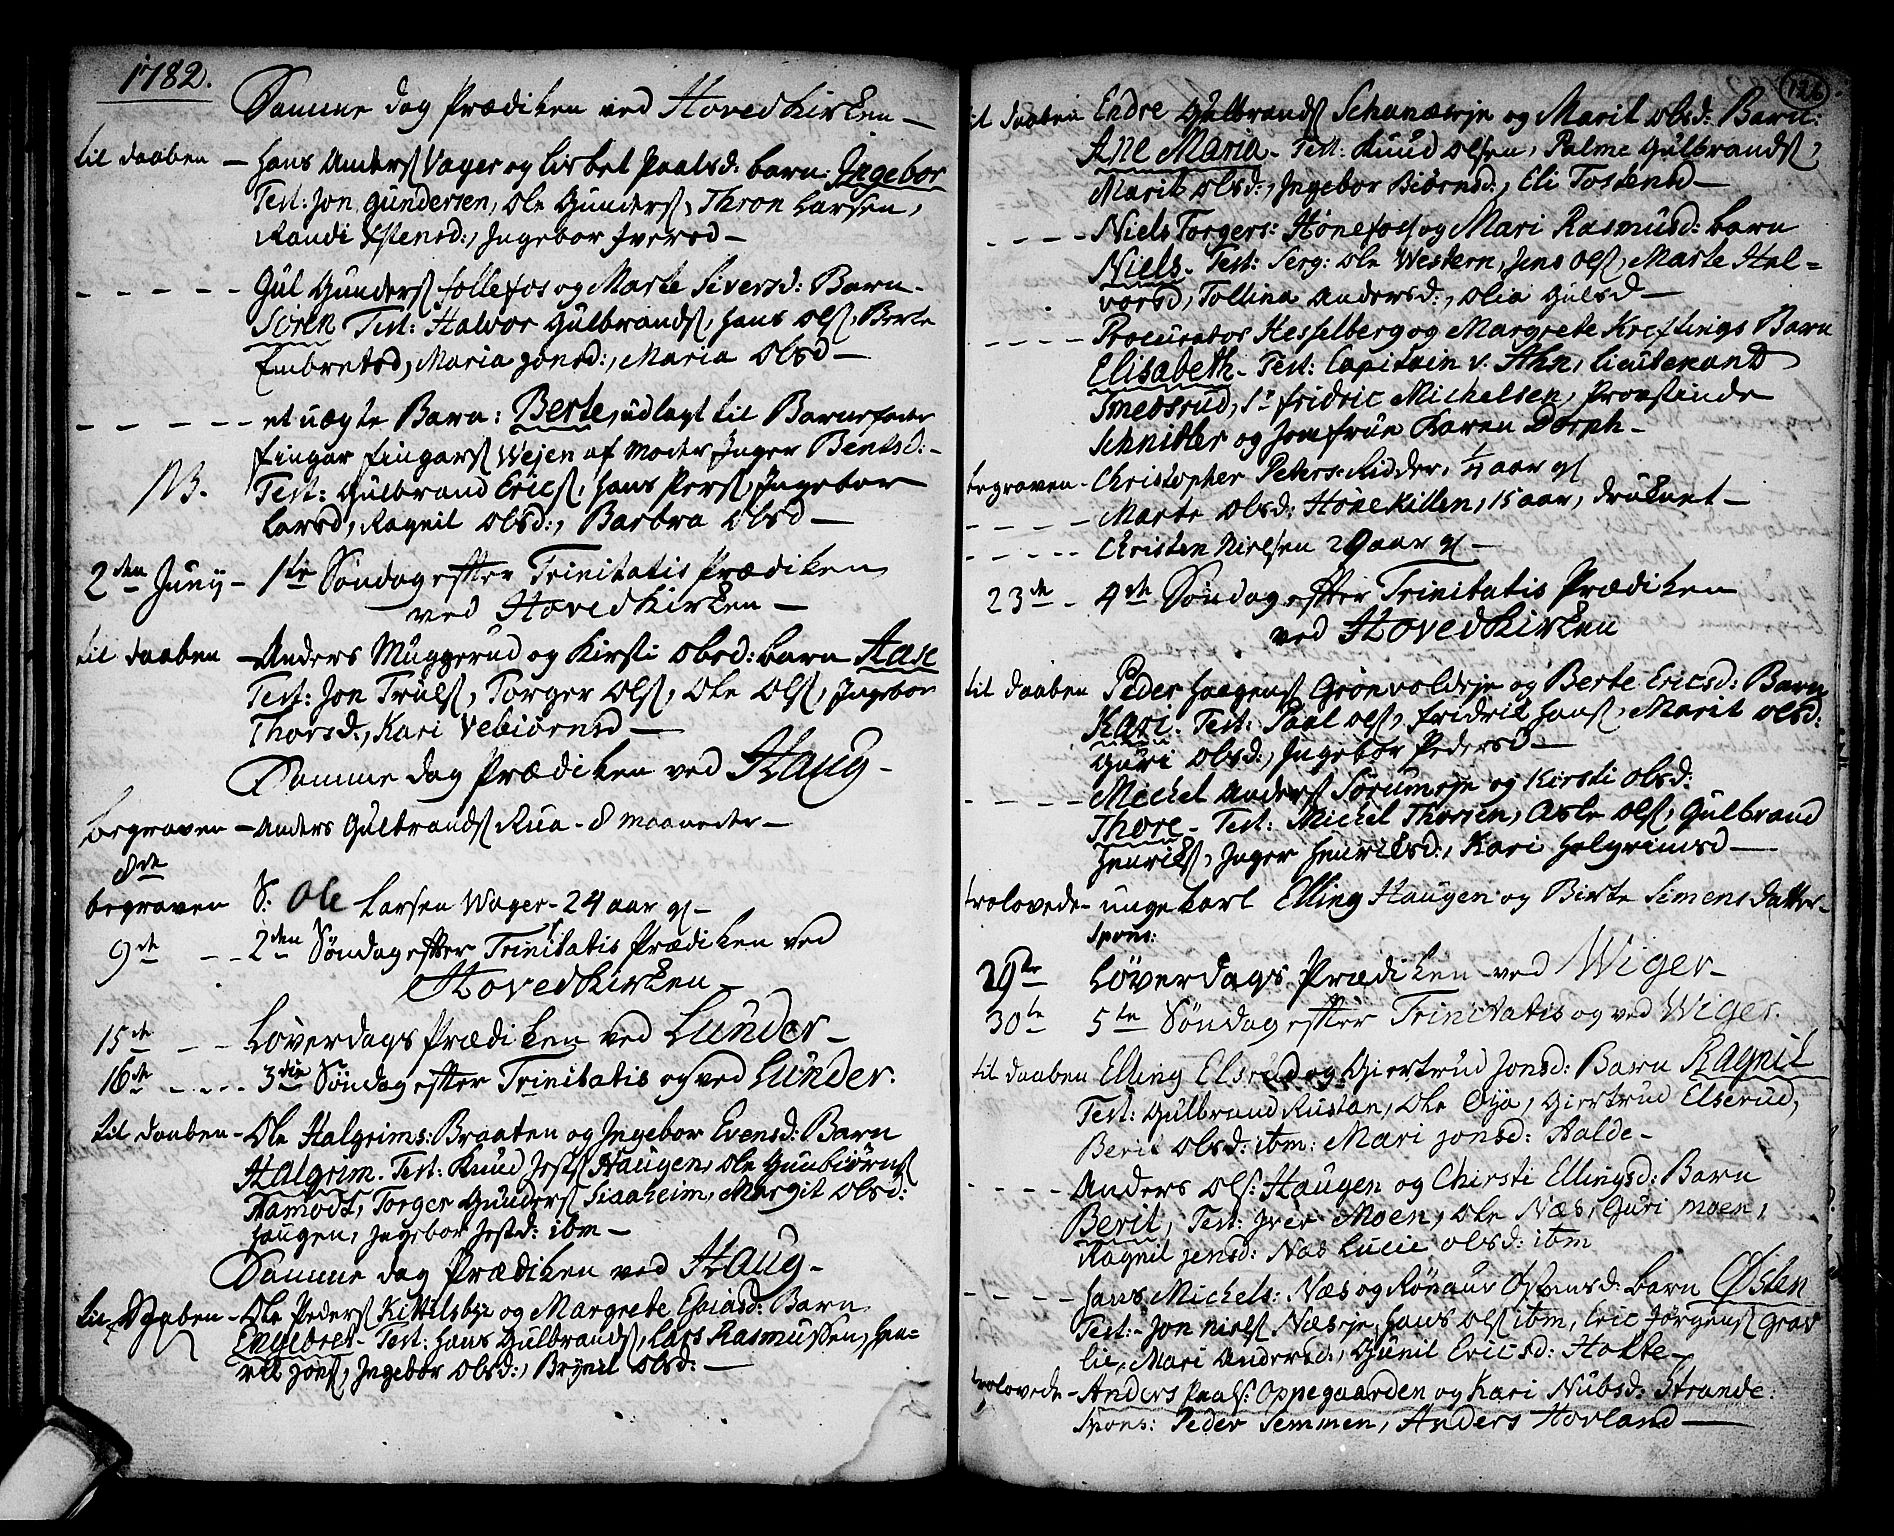 1782.
Samme dag Prædiken ved Hovedkirken —
til daaben — Hans Anders: Vager og Lisbet Paalsd: barn: Ingebor
Test: Jon Gundersen, Ole Gunders:, Thron Larsen,
Randi Estensd:, Ingebor Iversd —
- - - - - Gul Gunders: Follefos og Marte Siversd: Barn
Sören Test: Halvor Gulbrands:, Hans Ols:, Berte
Embretsd, Maria Jonsd:, Maria Olsd —
- - - - - et uægte Barn: Berte, udlagt til Barnefader
Fingar Fingars: Wejen af Moder Inger Bentsd: -
NB. Test: Gulbrand Erics:, Hans Pers:, Ingebor
Larsd, Ragnil Olsd:, Barbra Olsd —
2den Juny — 1ste Söndag efter Trinitatis Prædiken
ved Hovedkirken —
til daaben — Anders Muggerud og Kirsti Olsd: barn Aase
Test: Jon Truls:, Torger Ols:, Ole Ols:, Ingebor
Thorsd:, Kari Vebiörnsd —
Samme dag Prædiken ved Haug -
begraven — Anders Gulbrands: Rua - 8 maaneder —
8de
begraven S: Ole Larsen Wager - 24 aar gl -
9de - - 2den Söndag efter Trinitatis Prædiken ved
Hovedkirken -
15de - - Löverdags Prædiken ved Lunder -
16de - - - 3die Söndag efter Trinitatis og ved Lunder.
til daaben - Ole Halgrims: Braaten og Ingebor Evensd: Barn
Halgrim. Test: Knud Josts: Haugen, Ole Gunbiörns:
Hamodt, Torger Gunders: Siaaheim, Margit Olsd:
Haugen, Ingebor Jostd: ibm —
Samme dag Prædiken ved Haug -
til Daaben - Ole Peders: Kittilsbye og Margrete Esaiasd: Barn
Engebret - Test: Hans Gulbrands:, Lars Rasmussen, Hen=
rik Jons:, Ingebor Olsd:, Brynil Olsd: —
126
til daaben Endre Gulbrands: Schanæeje og Marit Olsd: Barn:
Ane Maria - Test: Knud Olsen, Palme Gulbrands:,
Marit Olsd:, Ingebor Biörnsd:, Eli Tostensd —
- - - - Niels Torgers: Hönefos og Mari Rasmusd: barn
Niels - Test: Serg: Ole Western, Jens Ols:, Marte Hal=
vorsd, Tollina Andersd:, Olia Gulsd —
- - - - Procurator Hesselberg og Margrete Kreftings Barn
Elisabeth - Test: Capitain v. Ahn, Lieutenant
Smedsrud, Sr Fridric Michelsen, Provstinde
Schnitler og Jomfrue Karen Dorph -
begraven - Christopher Peters: Ridder, 1/4 aar gl
- - - - Marte Olsd: Hönekillen, 15 aar, druknet —
- - - - - Christen Nielsen 29 aar gl —
23de - 4de Söndag efter Trinitatis Prædiken
ved Hovedkirken
til daaben Peder Haagens: Grönvoldeje og Berte Ericsd: Barn
Kari - Test: Paal Ols:, Fridrik Hans:, Marit Olsd:
Guri Olsd:, Ingebor Pedersd —
- - - - Mechel Anders: Sörumeje og Kirsti Olsd:
Thore - Test: Michel Thorsen, Asle Ols:, Gulbrand
Henriks:, Inger Henriksd:, Kari Halgrimsd —
trolovede - unge karl Elling Haugen og Birte Simens datter -
Spons:
29de Löverdags Prædiken ved Wiger -
30te 5te Söndag efter Trinitatis og ved Wiger.
til daaben Elling Elsrud og Giertrud Jonsd: Barn Ragnil
Test: Gulbrand Rustan, Ole Öya, Giertrud Elserud,
Berit Olsd: ibm: Mari Jonsd: Aalde -
- - - - Anders Ols: Haugen og Chirsti Ellingsd: Barn
Berit, Test: Iver Moen, Ole Næs, Guri Moen,
Ragnil Jensd: Næs Lucie Olsd: ibm
- - - - Hans Michels: Næs og Rönaug Östensd: barn Østen
Test: - Jon Niels: Næseje, Hans Ols: ibm, Eric Jörgens: Grav
lie, Mari Andersd:, Gunil Ericsd: Holte -
trolovede - Anders Paals: Oppegaarden og Kari Nubsd: Strande.
Spons: Peder Semmen, Anders Hovland —